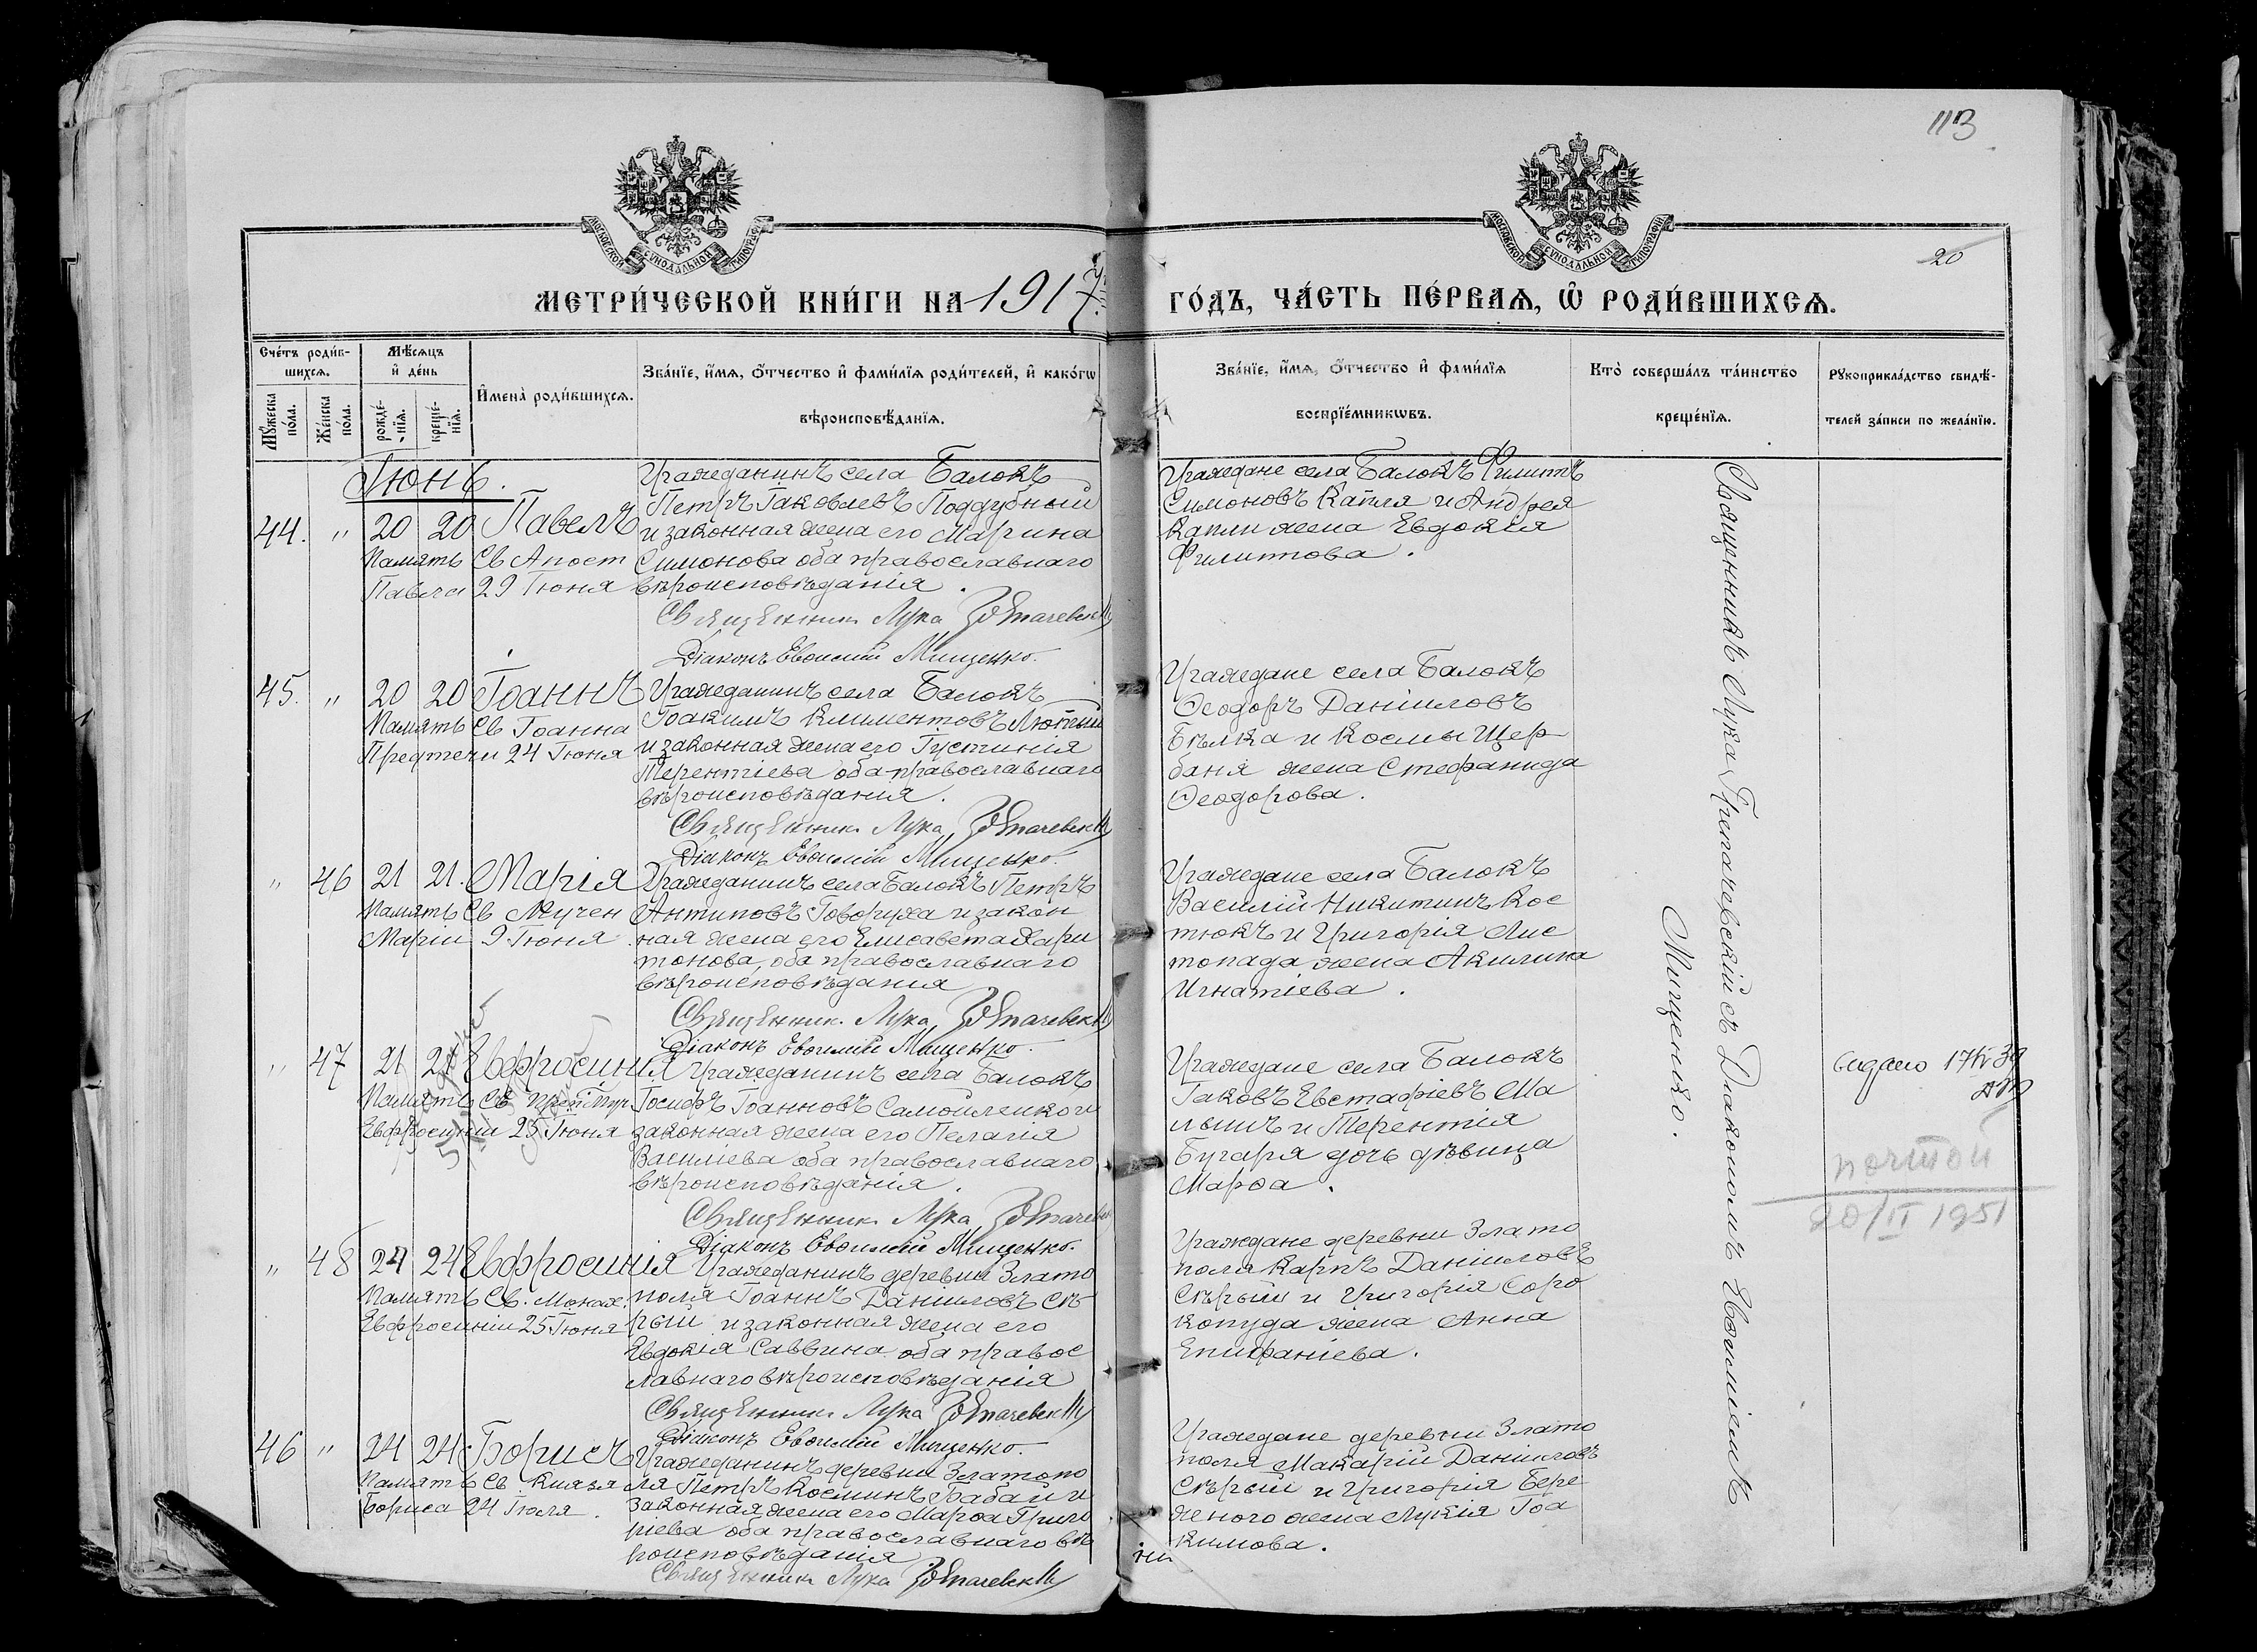 113
МОСКОВСКОЙ СУНОДАЛЬНОЙ ТИПОГРАФІИ
МОСКОВСКОЙ СУНОДАЛЬНОЙ ТИПОГРАФІИ
20
МЕТРИ́ЧЕСКОЙ КНИ́ГИ НА 1917
ГО́ДЪ, ЧА́СТЬ ПЕ́РВАѦ, Ѿ РОДИ́ВШИХСѦ.
Сче́тъ роди́в-
шихсѧ.
Мѣ́сѧцъ
и҆ де́нь
Мꙋ́жеска по́ла.
Же́нска по́ла.
рожде́-нїѧ.
креще́-нїѧ.
И҆мена̀ роди́вшихсѧ.
Зва́нїе, и҆́мѧ, ѻ҆́тчество и҆ фами́лїѧ роди́телей, и҆ како́гѡ
вѣроисповѣ́данїѧ.
Зва́нїе, и҆́мѧ, ѻ҆́тчество и҆ фами́лїѧ
воспрїе́мникѡвъ.
Кто̀ соверша́лъ та́инство
креще́нїѧ.
Рꙋкоприкла́дство свидѣ́-
телей за́писи по жела́нїю.
Іюнь.
44. " 20 20 Павелъ
Память Св Апост
Павла 29 Іюня
Гражданинъ села Балокъ
Петръ Іаковлевъ Поддубный
и законная жена его Марина
Симонова оба православнаго
вѣроисповѣданія.
Священник Лука
Діаконъ Евѳимій Мищенко.
Граждане села Балокъ Филиппъ
Симоновъ Капля и Андрея
Капли жена Евдокія
Филиппова.
45. " 20 20 Іоаннъ
Память Св Іоанна
Предтечи 24 Іюня
Гражданинъ села Балокъ
Іоакимъ Климентовъ Лютый
и законная жена его Іустинія
Терентіева оба православнаго
вѣроисповѣданія.
Священник Лука
Діаконъ Евѳимій Мищенко.
Граждане села Балокъ
Ѳеодоръ Даніиловъ
Бѣлка и Космы Щер
баня жена Стефанида
Ѳеодорова.
" 46 21 21. Марія
Память Св Мучен
Маріи 9 Іюня
Гражданинъ села Балокъ Петръ
Антиповъ Говоруха и закон
ная жена его Елисавета Хари
тонова, оба православнаго
вѣроисповѣданія
Священник Лука
Діаконъ Евѳимій Мищенко.
Граждане села Балокъ
Василій Никитинъ Кос
тюкъ и Григорія Лис
топада жена Акилина
Игнатіева.
" 47 21 21 Евфросинія
Память Св
Евфросиніи 25 Іюня
Гражданинъ села Балокъ
Іосифъ Іоанновъ Самойленко и
законная жена его Пелагія
Василіева оба православнаго
вѣроисповѣданія.
Священник Лука
Діаконъ Евѳимій Мищенко.
Граждане села Балокъ
Іаковъ Евстафіевъ Ма
лышъ и Терентія
Бугаря дочь дѣвица
Марѳа.
почтой
20/II 1951
" 48 24 24 Евфросинія
Память Св. Монах.
Евфросиніи 25 Іюня
Гражданинъ деревни Злато
поля Іоаннъ Даніиловъ Сѣ
рый и законная жена его
Евдокія Саввина оба правос
лавнаго вѣроисповѣданія
Священник Лука
Діаконъ Евѳимій Мищенко.
Граждане деревни Злато
поля Карпъ Даніиловъ
Сѣрый и Григорія Соро
копуда жена Анна
Епифаніева.
46 " 24 24 Борисъ
Память Св. Князя
Бориса 24 Іюля.
Гражданинъ деревни Златопо
ля Петръ Косминъ Бабай и
законная жена его Марѳа Григо
ріева оба православнаго вѣ
роисповѣданія
Священник Лука
Граждане деревни Злато
поля Макарій Даніиловъ
Сѣрый и Григорія Бере
жного жена Лукія Іоа
кимова.
Священникъ Лука с Діакономъ Евѳиміемъ
Мищенко.